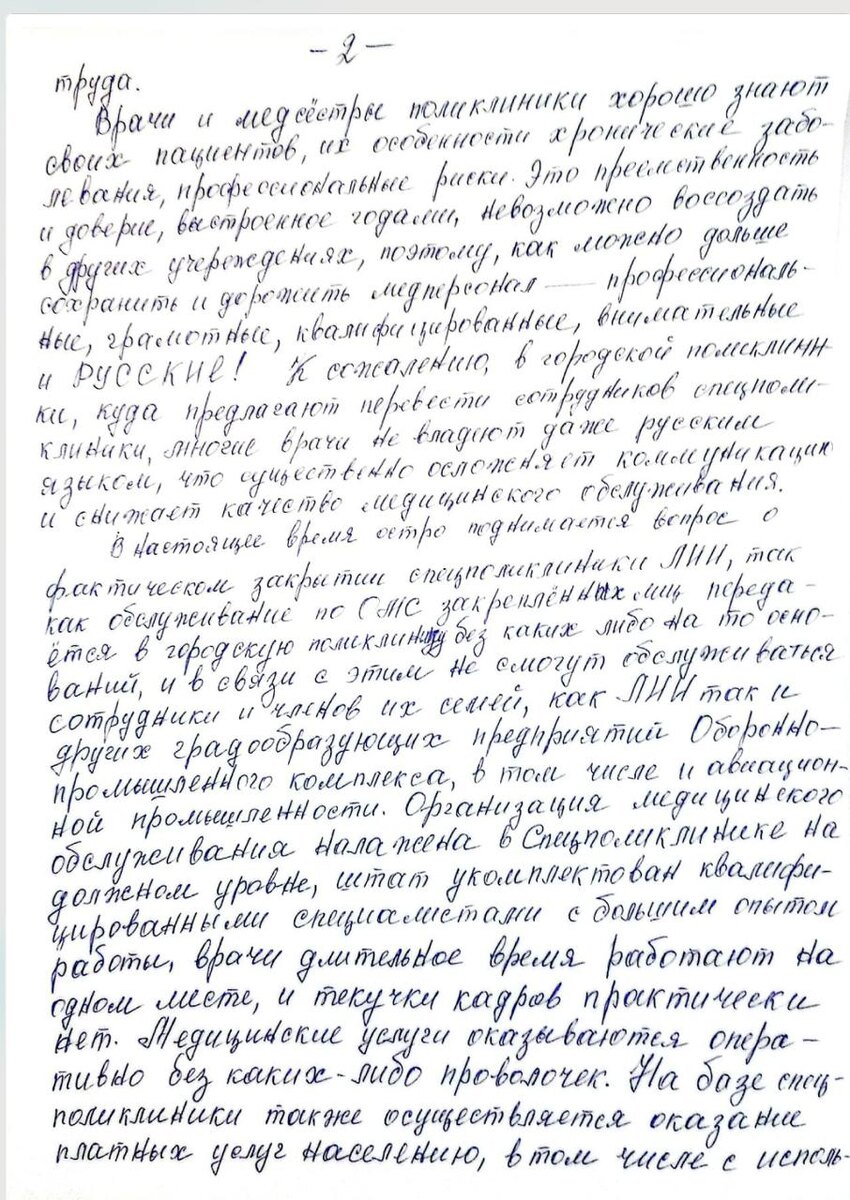 - 2 -
труда.
Врачи и медсёстры поликлиники хорошо знают
своих пациентов, их особенности хронические забо-
левания, профессиональные риски. Это преемственность
и доверие, выстроенное годами, невозможно воссоздать
в других учереждениях, поэтому, как можно дольше
сохранить и дорожить медперсонал — профессиональ-
ные, грамотные, квалифицированные, внимательные
и РУССКИЕ! К сожалению, в городской поликлини-
ки, куда предлагают перевести сотрудников спецполи-
клиники, многие врачи не владеют даже русским
языком, что существенно осложняет коммуникацию
и снижает качество медицинского обслуживания.
В настоящее время остро поднимается вопрос о
фактическом закрытии спецполиклиники ЛИИ, так
как обслуживание по ОМС закреплённых лиц переда-
ётся в городскую поликлинику без каких либо на то осно-
ваний, и в связи с этим не смогут обслуживаться
сотрудники и членов их семей, как ЛИИ так и
других градообразующих предприятий Оборонно-
промышленного комплекса, в том числе и авиацион-
ной промышленности. Организация медицинского
обслуживания налажена в Спецполиклинике на
должном уровне, штат укомплектован квалифи-
цированными специалистами с большим опытом
работы, врачи длительное время работают на
одном месте, и текучки кадров практически
нет. Медицинские услуги оказываются опера-
тивно без каких-либо проволочек. На базе спец-
поликлиники также осуществляется оказание
платных услуг населению, в том числе с исполь-